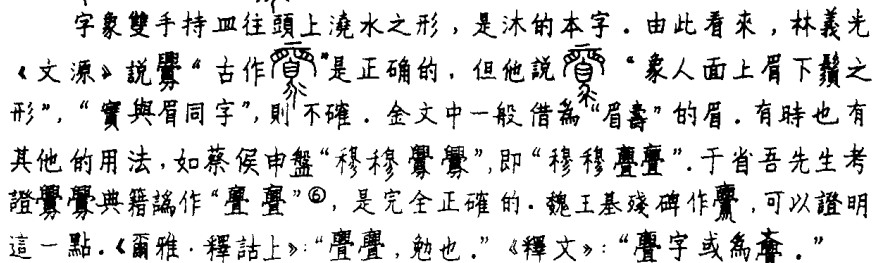 字象雙手持皿往頭上澆水之形，是沐的本字．由此看來，林義光
《文源》說釁“古作”是正确的，但他說“象人面上眉下鬚之
形”，“實與眉同字”，則不確．金文中一般借為“眉壽”的眉．有時也有
其他的用法，如蔡侯申盤“穆穆釁釁”，即“穆穆亹亹”．于省吾先生考
證釁釁典籍譌作“亹亹”⑥，是完全正確的．魏王基殘碑作，可以證明
這一點．《爾雅·釋詁上》：“亹亹，勉也．”《釋文》：“亹字或為．”